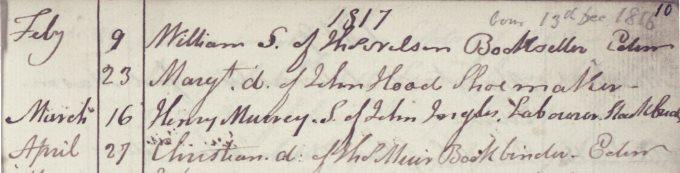 1817 born 13th Dec 1816 10
Feby 9 William S. of Thos Nelson Bookseller Edinr
23 Maryt. d. of John Hood Shoemaker
March 16 Henry Murrey. S. of John Ingles, Labourer
April 27 Christian. d. of Thos Muir Bookbinder. Edinr